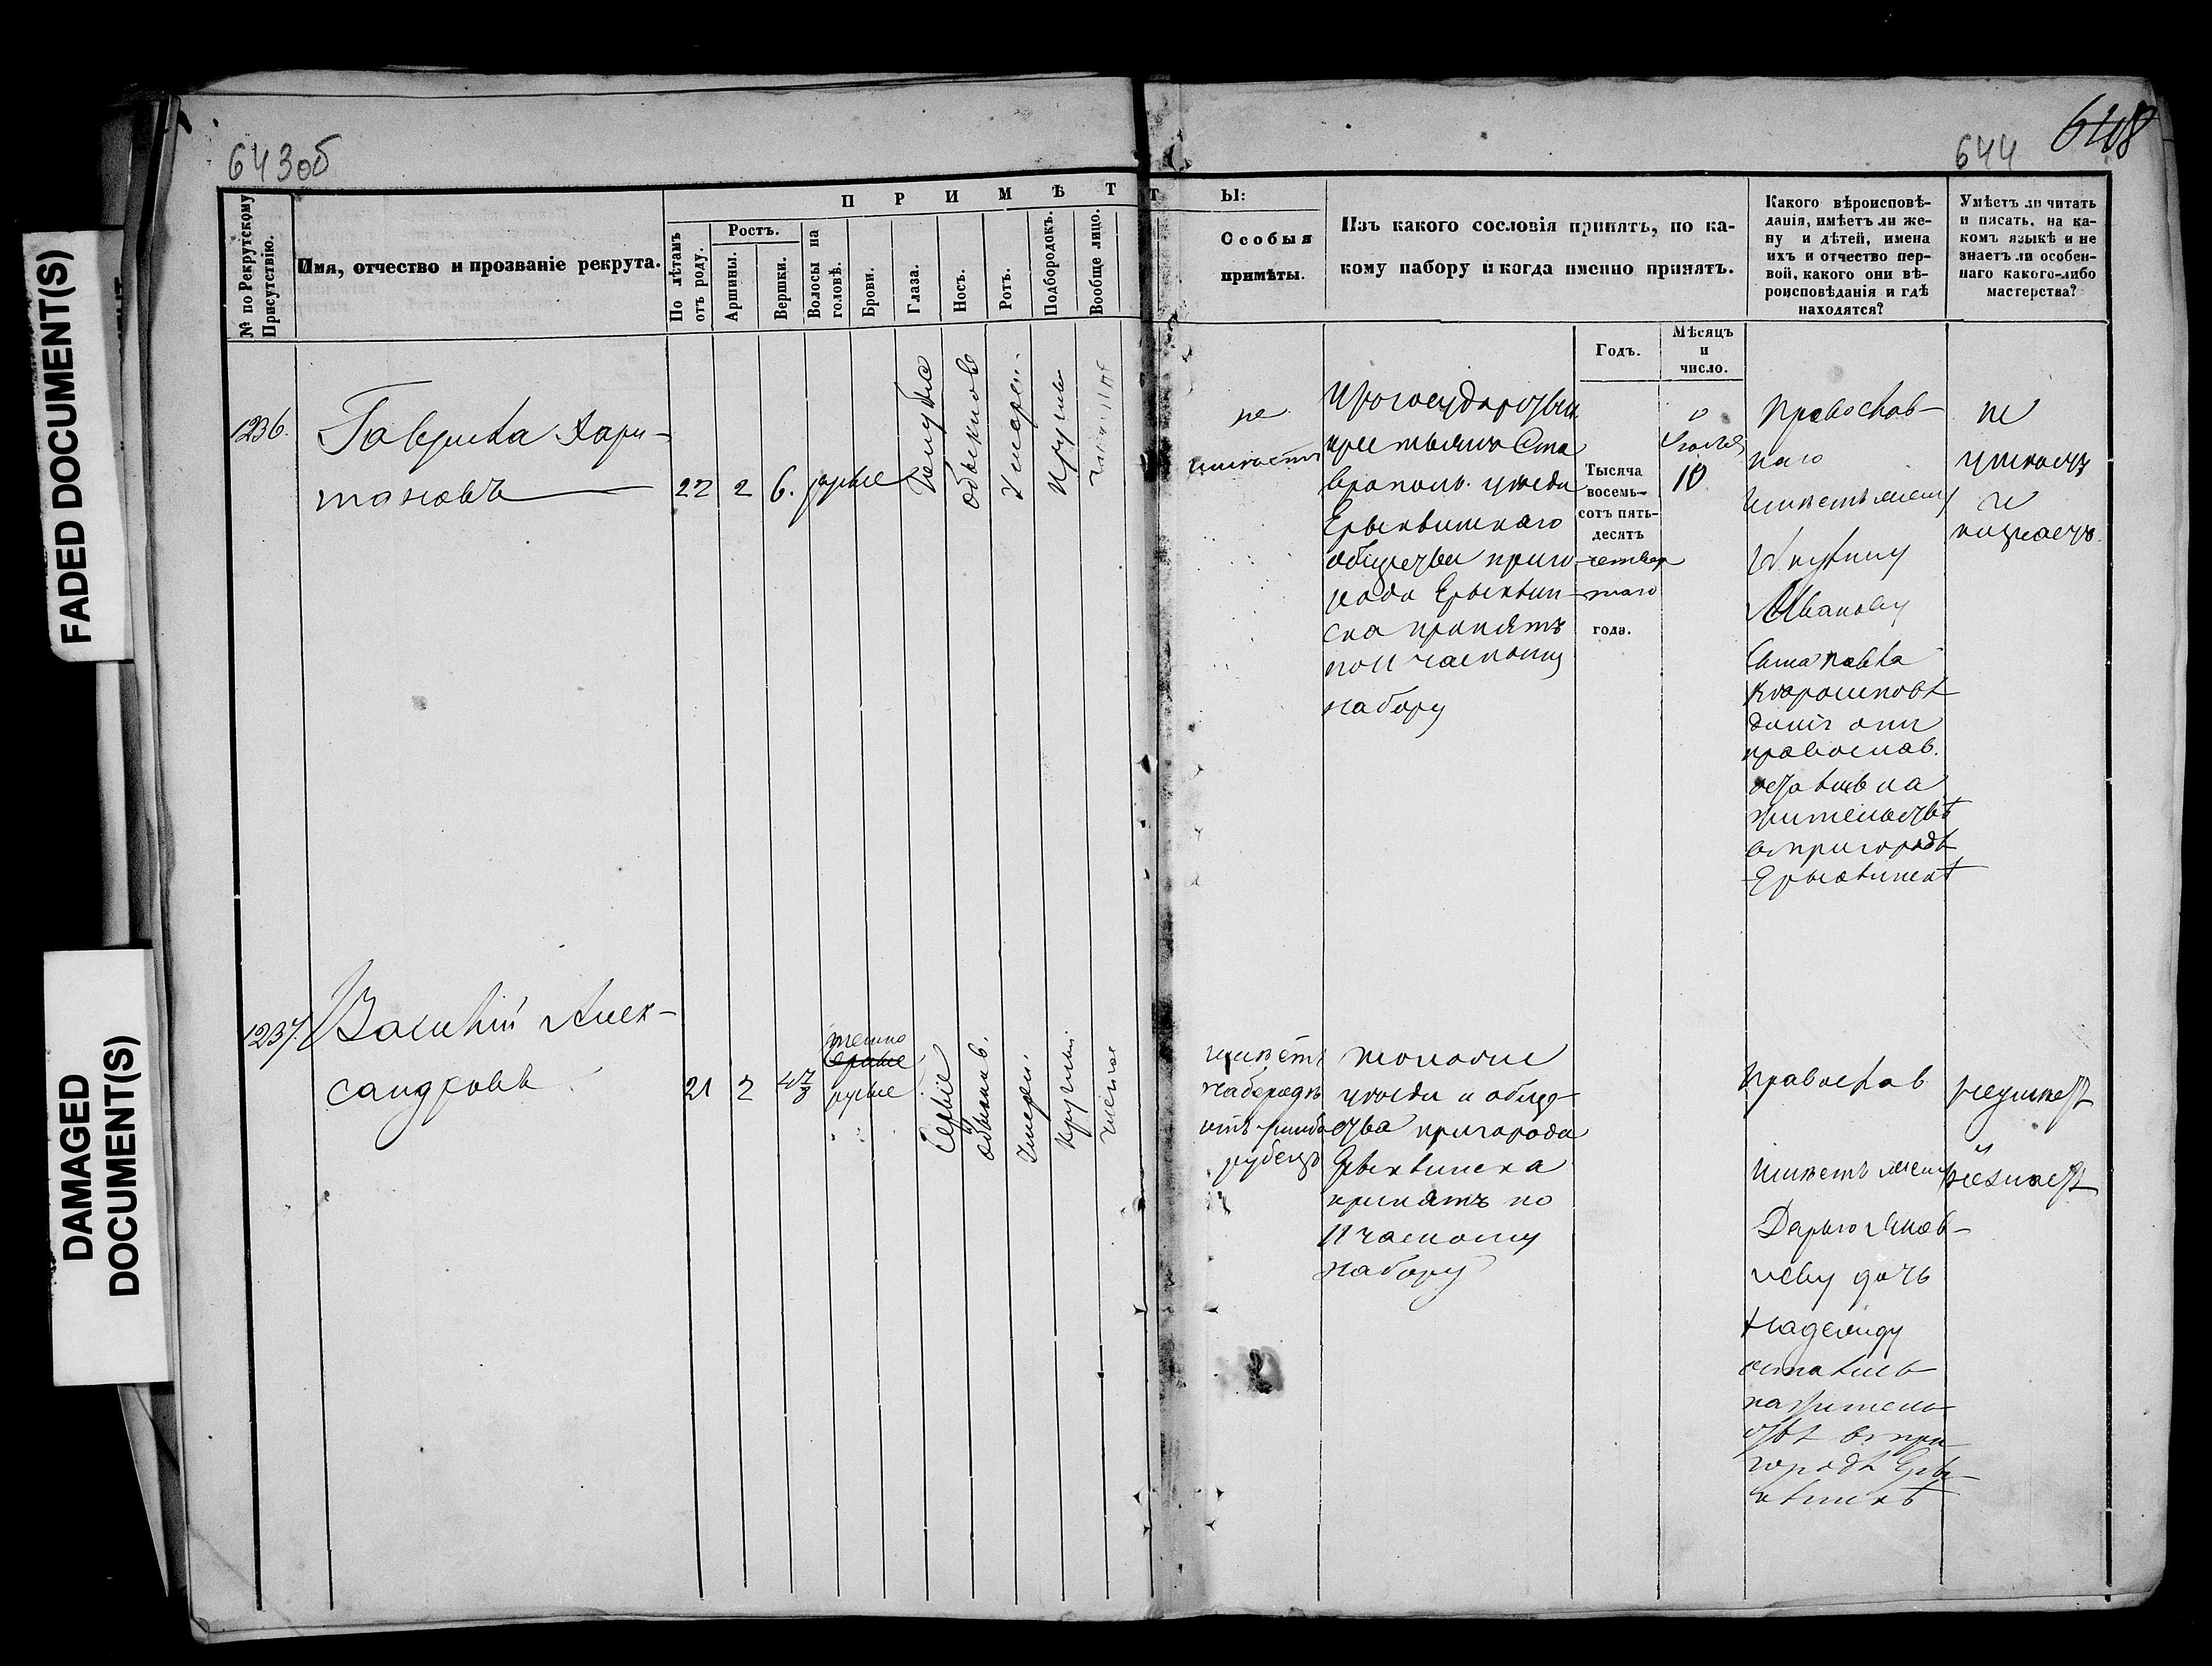 FADED DOCUMENT(S)
DAMAGED
DOCUMENT(S)
643об
644
648
П Р И М Ѣ Т Т Ы:
№ по Рекрутскому
Присутствію.
Имя, отчество и прозваніе рекрута.
По лѣтамъ
отъ роду.
Ростъ.
Аршины.
Вершки.
Волосы на
головѣ.
Брови.
Глаза.
Носъ.
Ротъ.
Подбородокъ.
Вообще лицо.
Особыя
примѣты.
Изъ какого сословія принятъ, по ка-
кому набору и когда именно принятъ.
Какого вѣроисповѣ-
данія, имѣетъ ли же-
ну и дѣтей, имена
ихъ и отчество пер-
вой, какого они вѣ-
роисповѣданія и гдѣ
находятся?
Умѣетъ ли читать
и писать, на ка-
комъ языкѣ и не
знаетъ ли особен-
наго какого-либо
мастерства?
Годъ.
Мѣсяцъ
и
число.
1236.
Гаврила Хари-
тоновъ
22
2
6.
русые
Голубые
обыкнов
Умерен.
Кругл
чистое
не
имѣетъ
Изъ государствен
крестьянъ Ста
врополь. уѣзда
Ерыклинскаго
общества приго
рода Ерыклин-
ска принятъ
по 11 частному
набору
Тысяча
восемь-
сотъ пять-
десятъ
четвер
таго
года.
Іюля
10
Православ-
наго
имѣетъ жену
Иванову
сына Павла
вѣроисповѣ
данія они
православ.
остались на
жительствѣ
въ пригородѣ
Ерыклинскѣ
не
умѣетъ
и
незнаетъ.
1237.
Василій Алек-
сандровъ
21
2
4 2/3
темно
русые
Серые
обыкнов.
Умерен.
Круглый
чистое
имѣетъ
на бородѣ
отъ ушиба
рубецъ
тогоже
уѣзда и обще-
ства пригорода
Ерыклинска
принятъ по
11 частному
набору
Православ
имѣетъ жену
Дарью Яков-
леву дочь
Надежду
остались
на житель
ствѣ въ при
городѣ Еры-
клинскѣ
неумѣетъ
и
незнаетъ